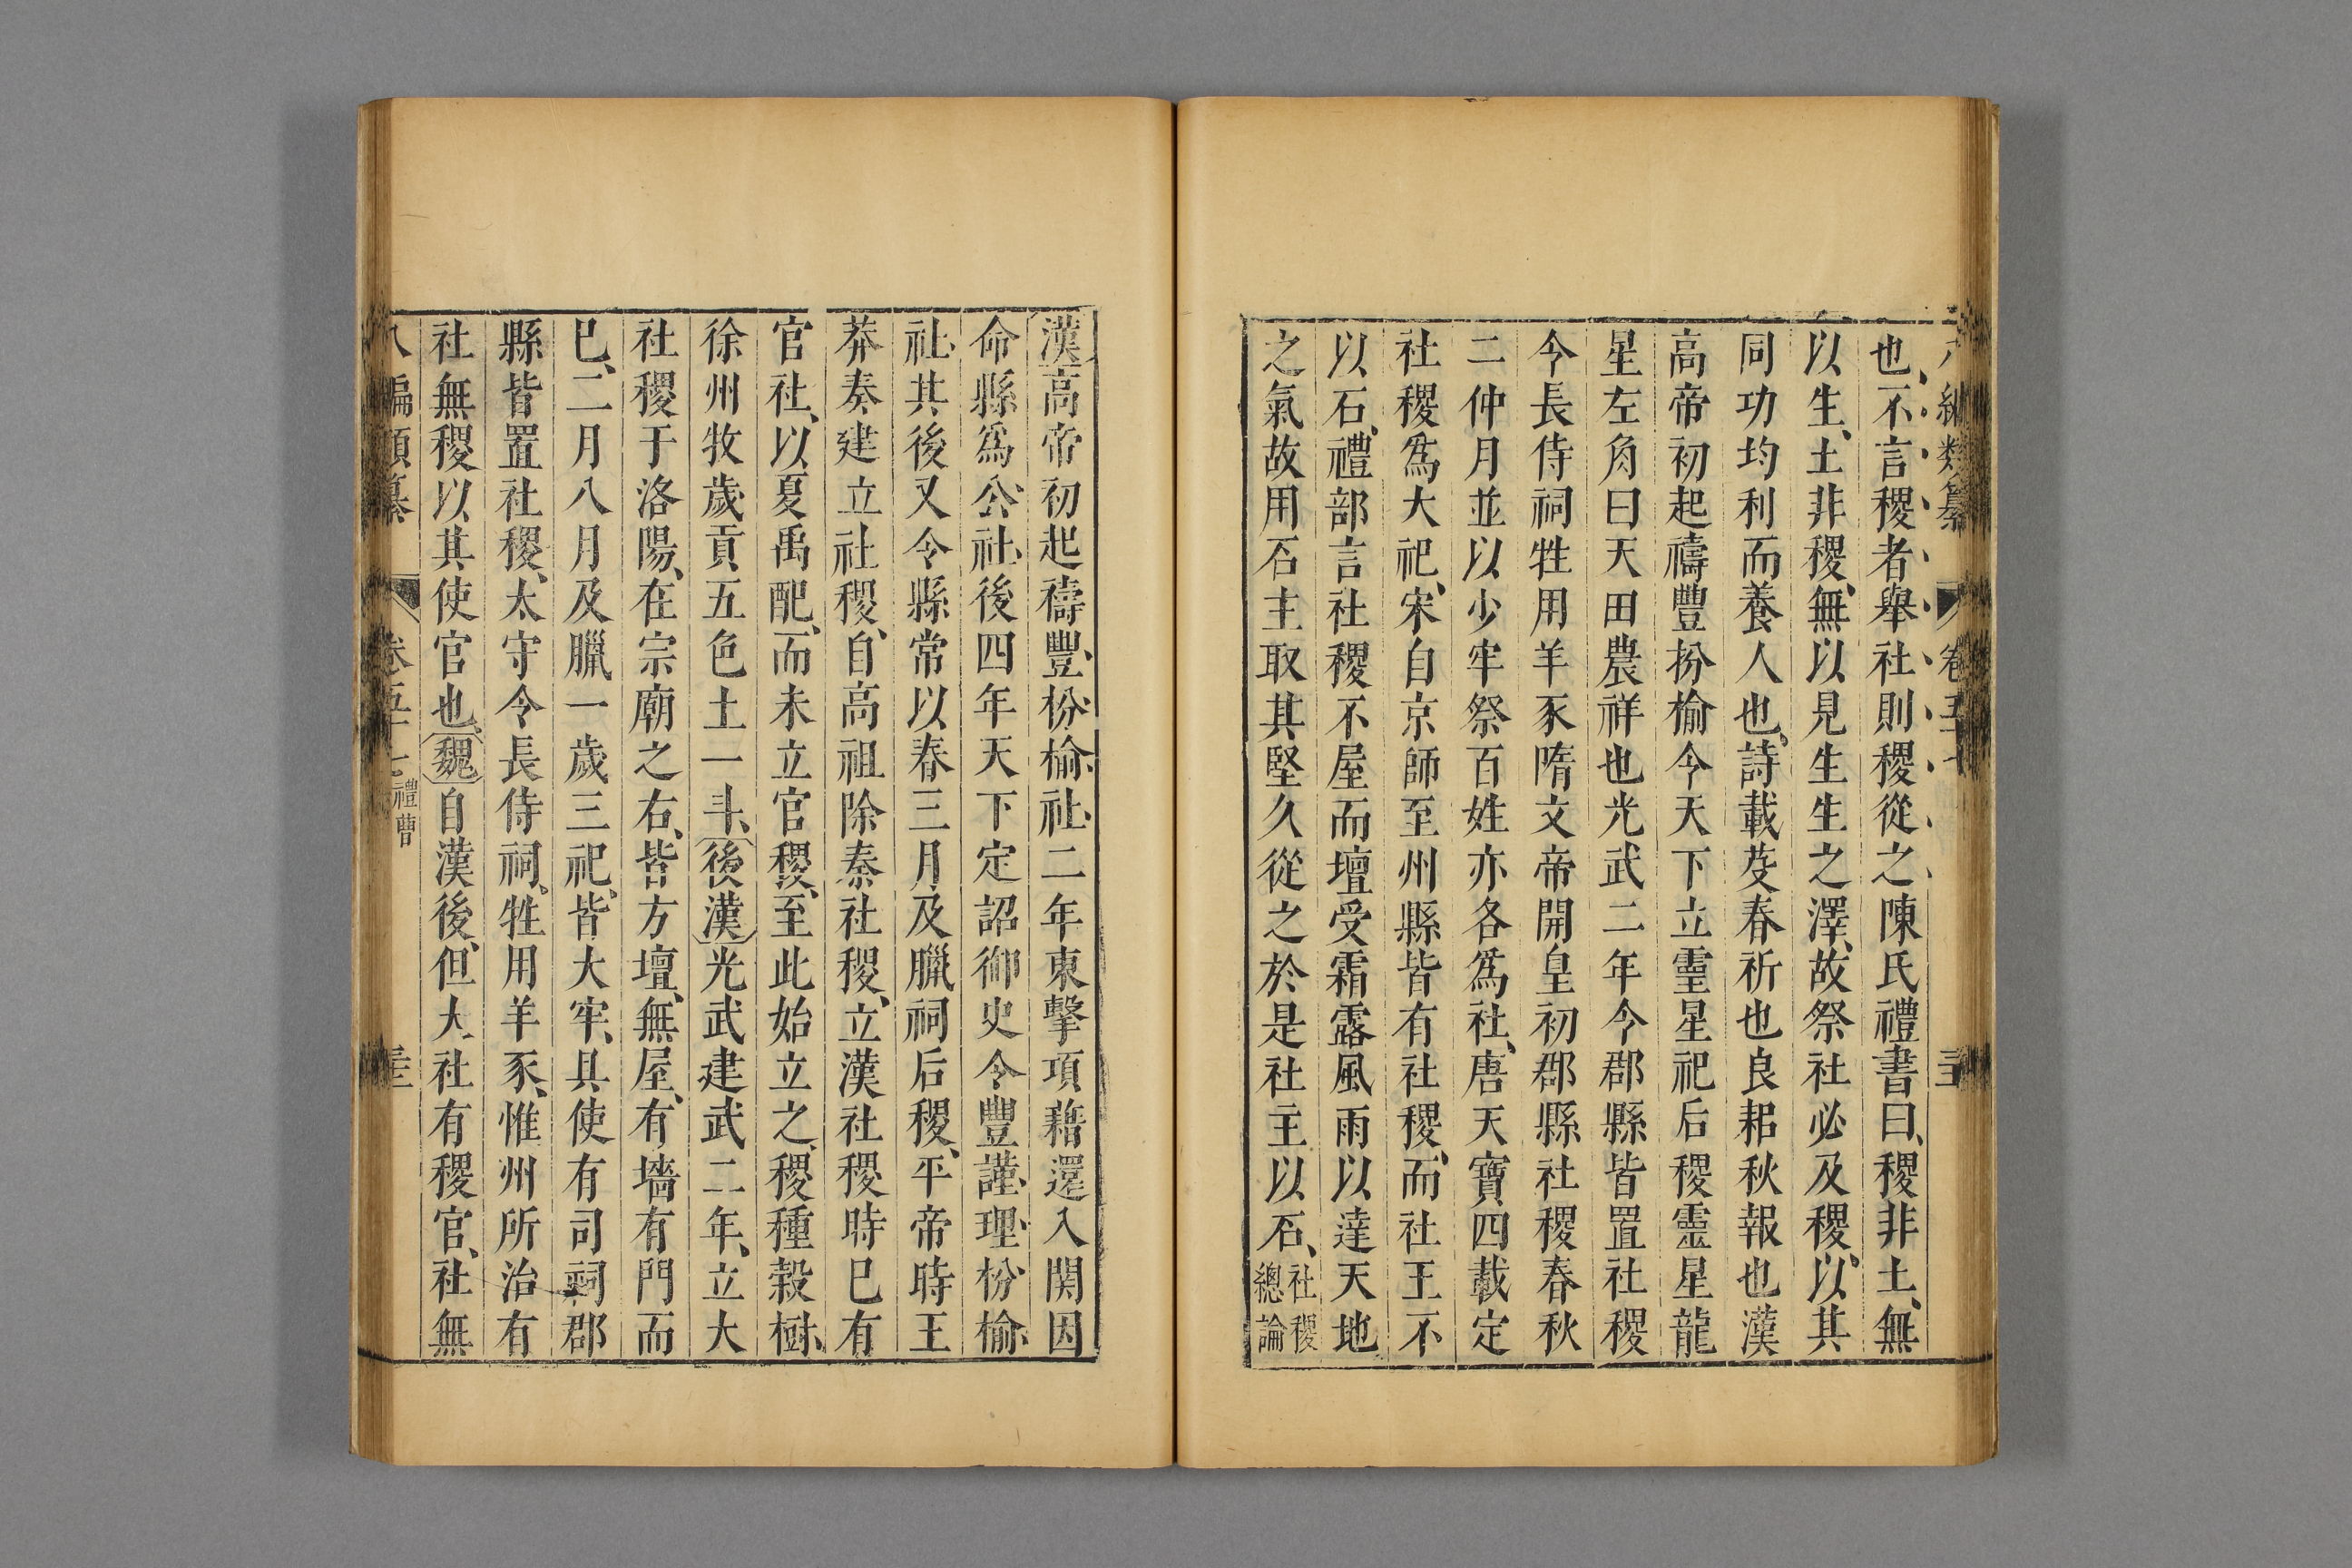 也不言稷者舉社則稷從之陳氏禮書曰稷非土無
以生土非稷無以見生生之澤故祭社必及稷以其
同功均利而養人也詩載芟春祈也良耜秋報也漢
高帝初起禱豐枌榆今天下立靈星祀后稷靈星龍
星左角曰天田農祥也光武二年令郡縣皆置社稷
令長侍祠牲用羊豕隋文帝開皇初郡縣社稷春秋
二仲月並以少牢祭百姓亦各爲社唐天寶四載定
社稷爲大祀宋自京師至州縣皆有社稷而社王不
以石禮部言社稷不屋而壇受霜露風雨以達天地
之氣故用石主取其堅久從之於是社主以石社稷總論
漢高帝初起禱豐枌榆社二年東擊項藉還入関因
命縣爲公社後四年天下定詔御史令豐謹理枌榆
社其後又令縣常以春三月及臘祠后稷平帝時王
莽奏建立社稷自高祖除秦社稷立漢社稷時巳有
官社以夏禹配而未立官稷至此始立之稷種榖樹
徐州牧歲貢五色土一斗後漢光武建武二年立大
社稷于洛陽在宗廟之右皆方壇無屋有墻有門而
巳二月八月及臘一歲三祀皆大牢具使有司祠郡
縣皆置社稷太守令長侍祠牲用羊豕惟州所治有
社無稷以其使官也魏自漢後但大社有稷官社無
八編類纂 卷五十七 禮曹